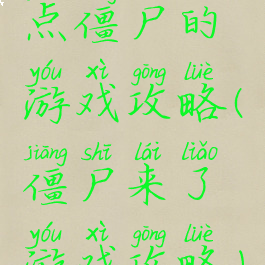 点僵尸的
yóu xì gōng lüè
游戏攻略(
jiāng shī lái liǎo
僵尸来了
yóu xì gōng lüè
游戏攻略)